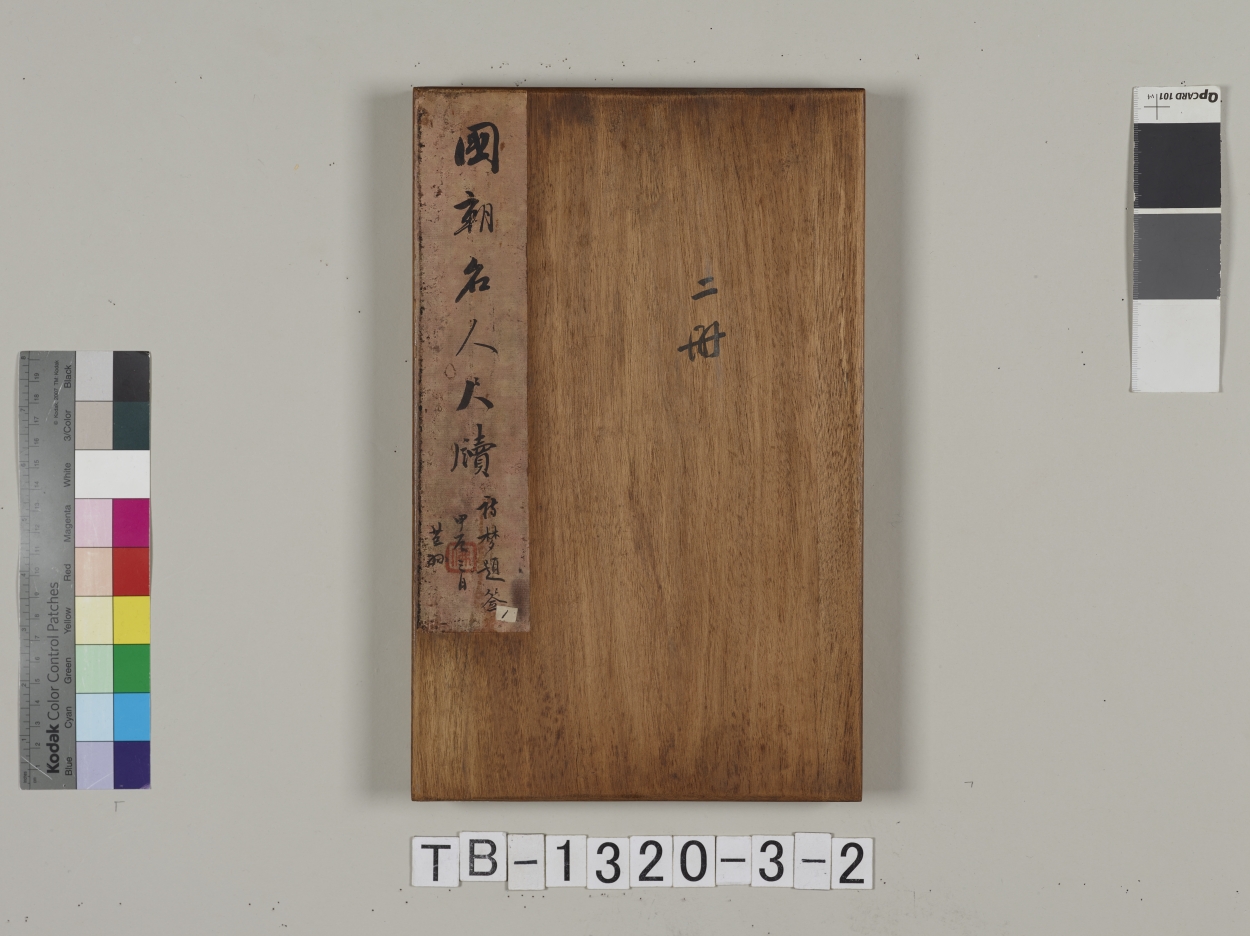 國朝名人尺牘
詩夢題簽
甲辰二月
二冊
TB-1320-3-2
Kodak Color Control Patches
Blue Cyan Green Yellow Red Magenta White 3/Color Black
QPCARD 101